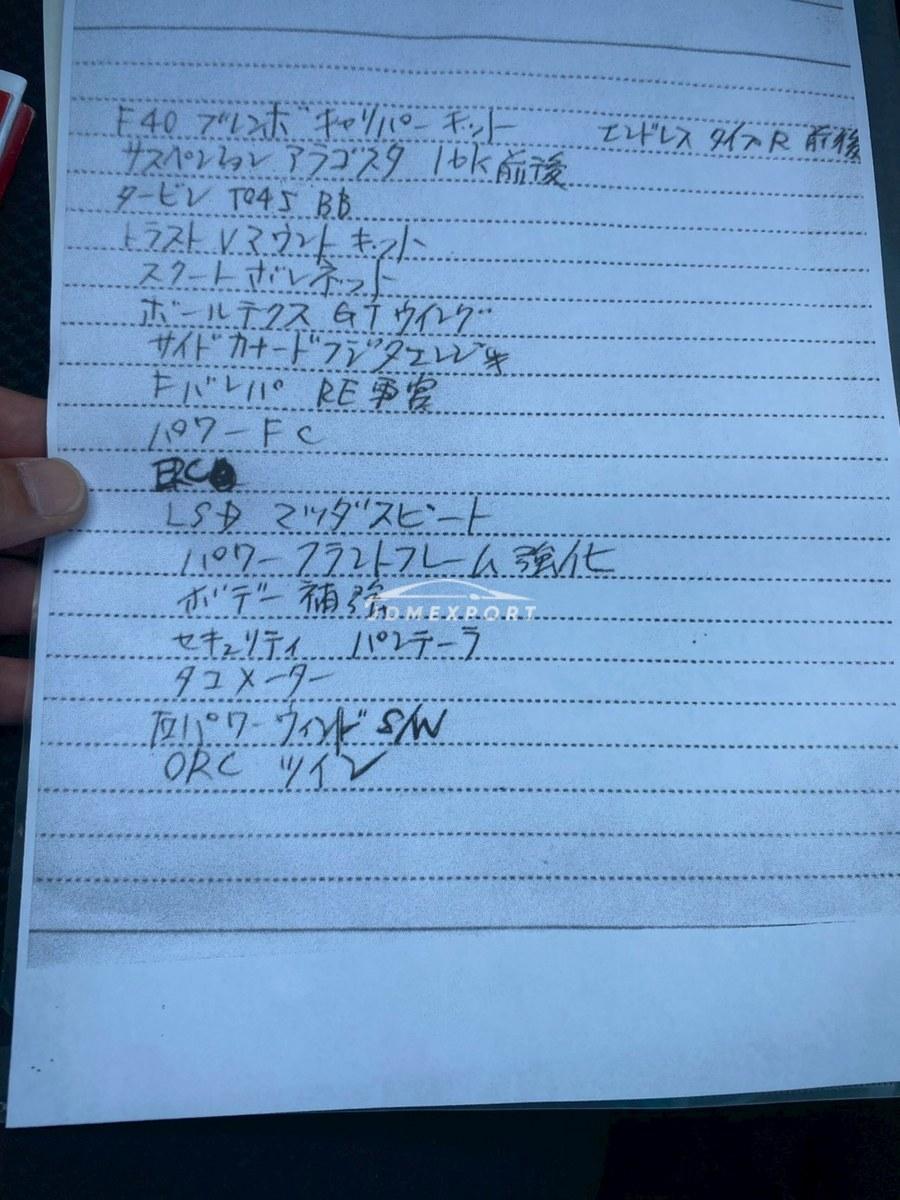 F40 ブレンボ キャリパー キット エンドレス タイプR 前後
サスペンション アラゴスタ 16K 前後
タービン T045 BB
トラスト Vマウント キット
スクート ボンネット
ボールテクス GT ウイング
サイド カナード フジタエンジ
Fバンパ RE雨宮
パワーFC
LSD マツダスピード
パワー フラントフレーム 強化
ボデー 補強
JDMEXPORT
セキュリティ パンテーラ
タコメーター
パワーウィンド S/W
ORC ツイン